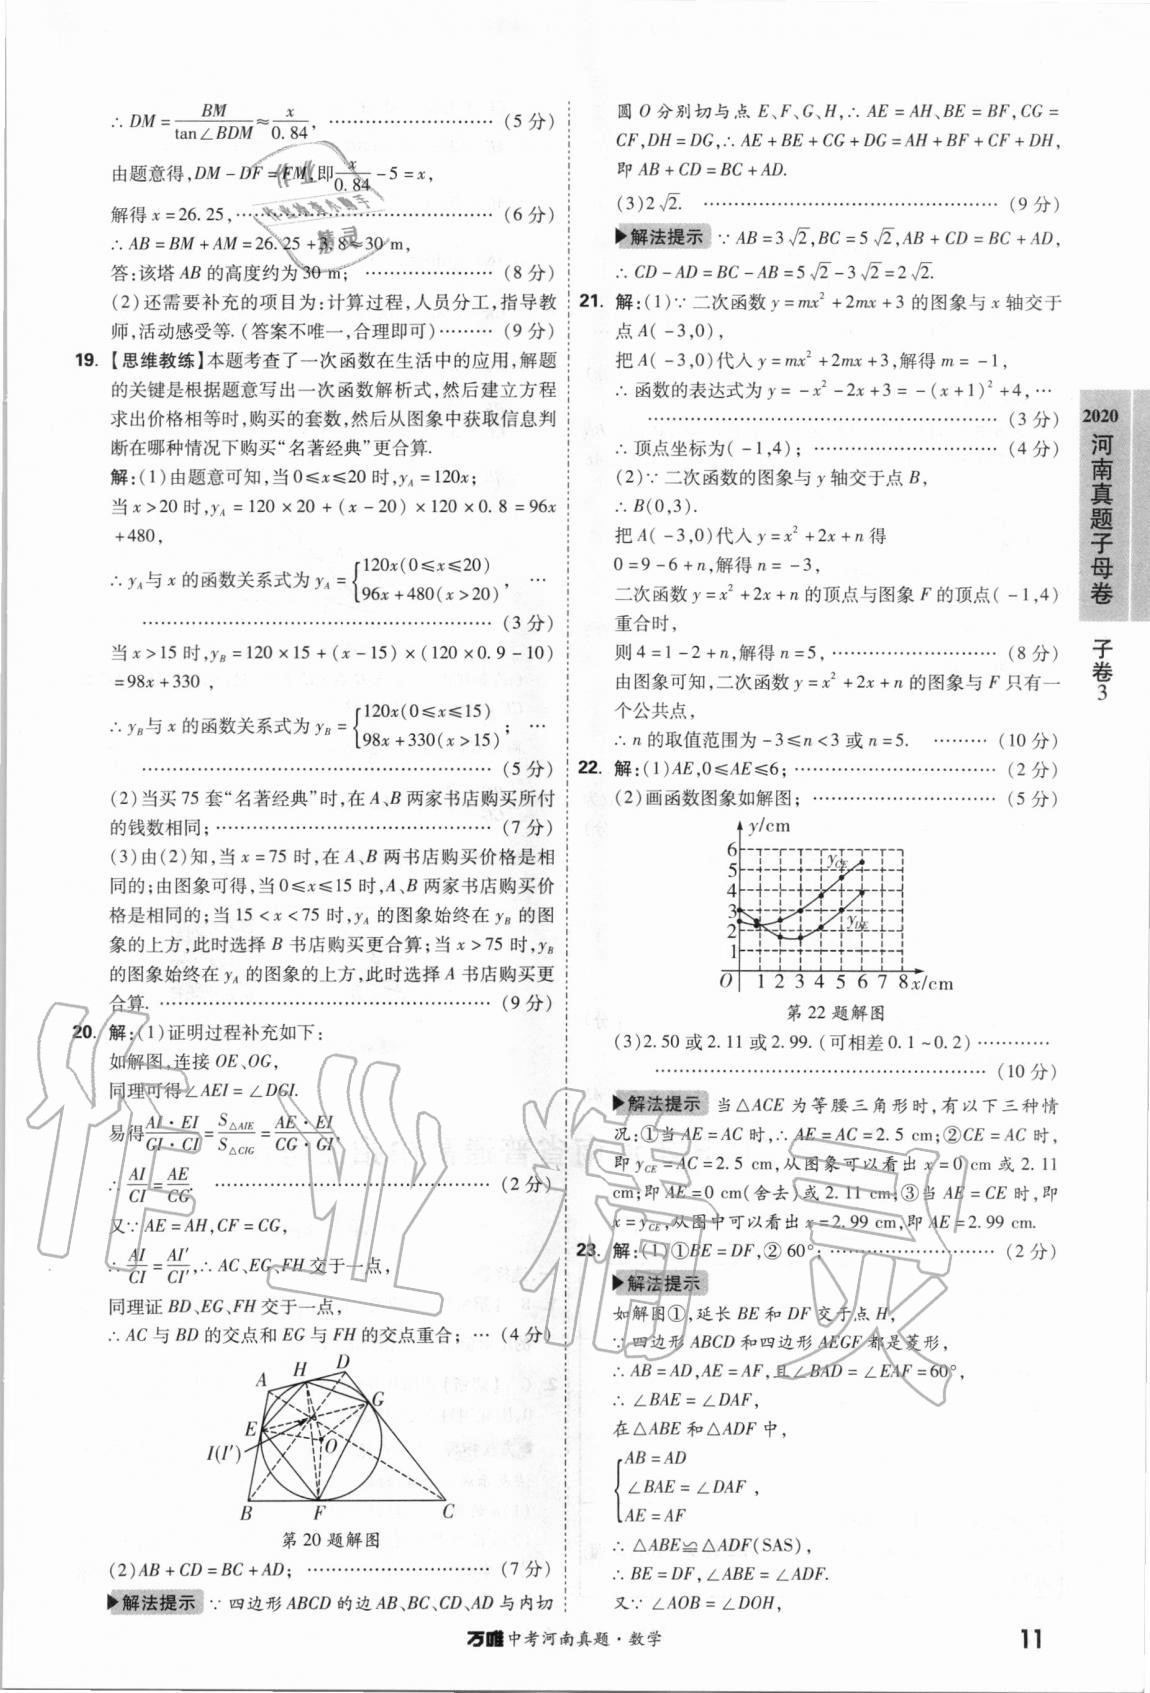 ∴DM=BM/tan∠BDM≈x/0.84, ……………………(5分)
由题意得,DM-DF=FM,即x/0.84-5=x,
解得x=26.25, ……………………………(6分)
∴AB=BM+AM=26.25+3.8≈30 m,
答:该塔AB的高度约为30 m; ………………(8分)
(2)还需要补充的项目为:计算过程,人员分工,指导教
师,活动感受等.(答案不唯一,合理即可)………(9分)
19.【思维教练】本题考查了一次函数在生活中的应用,解题
的关键是根据题意写出一次函数解析式,然后建立方程
求出价格相等时,购买的套数,然后从图象中获取信息判
断在哪种情况下购买“名著经典”更合算.
解:(1)由题意可知,当0≤x≤20时,y_A=120x;
当x>20时,y_A=120×20+(x-20)×120×0.8=96x
+480,
∴y_A与x的函数关系式为y_A={120x(0≤x≤20)
96x+480(x>20), …
……………………………………………(3分)
当x>15时,y_B=120×15+(x-15)×(120×0.9-10)
=98x+330,
∴y_B与x的函数关系式为y_B={120x(0≤x≤15)
98x+330(x>15); …
……………………………………………(5分)
(2)当买75套“名著经典”时,在A、B两家书店购买所付
的钱数相同; ………………………………(7分)
(3)由(2)知,当x=75时,在A、B两书店购买价格是相
同的;由图象可得,当0≤x≤15时,A、B两家书店购买价
格是相同的;当15<x<75时,y_A的图象始终在y_B的图
象的上方,此时选择B书店购买更合算;当x>75时,y_B
的图象始终在y_A的图象的上方,此时选择A书店购买更
合算. ………………………………………(9分)
20. 解:(1)证明过程补充如下:
如解图,连接OE、OG,
同理可得∠AEI=∠DGI.
易得AI·EI/GI·CI=S△AIE/S△CIG=AE·EI/CG·GI,
∴AI/CI=AE/CG. ……………………………(2分)
又∵AE=AH,CF=CG,
∴AI/CI=AI′/CI′,∴AC、EG、FH交于一点,
同理证BD、EG、FH交于一点,
∴AC与BD的交点和EG与FH的交点重合; …(4分)
H D
A G
E
I(I′) O
B F C
第20题解图
(2)AB+CD=BC+AD; ………………………(7分)
解法提示 ∵四边形ABCD的边AB、BC、CD、AD与内切
圆O分别切与点E、F、G、H,∴AE=AH、BE=BF,CG=
CF,DH=DG,∴AE+BE+CG+DG=AH+BF+CF+DH,
即AB+CD=BC+AD.
(3)2√2. ……………………………………(9分)
解法提示 ∵AB=3√2,BC=5√2,AB+CD=BC+AD,
∴CD-AD=BC-AB=5√2-3√2=2√2.
21. 解:(1)∵二次函数y=mx²+2mx+3的图象与x轴交于
点A(-3,0),
把A(-3,0)代入y=mx²+2mx+3,解得m=-1,
∴函数的表达式为y=-x²-2x+3=-(x+1)²+4, …
……………………………………………(3分)
∴顶点坐标为(-1,4); ………………………(4分)
(2)∵二次函数的图象与y轴交于点B,
∴B(0,3).
把A(-3,0)代入y=x²+2x+n得
0=9-6+n,解得n=-3,
二次函数y=x²+2x+n的顶点与图象F的顶点(-1,4)
重合时,
则4=1-2+n,解得n=5, ……………………(8分)
由图象可知,二次函数y=x²+2x+n的图象与F只有一
个公共点,
∴n的取值范围为-3≤n<3或n=5. ………(10分)
22. 解:(1)AE,0≤AE≤6; …………………………(2分)
(2)画函数图象如解图; ………………………(5分)
y/cm
6
5
4
3
2
1
y_CE
y_DE
O 1 2 3 4 5 6 7 8 x/cm
第22题解图
(3)2.50或2.11或2.99.(可相差0.1~0.2)…………
……………………………………………(10分)
解法提示 当△ACE为等腰三角形时,有以下三种情
况:①当AE=AC时,∴AE=AC=2.5 cm;②CE=AC时,
即y_CE=AC=2.5 cm,从图象可以看出x=0 cm或2.11
cm;即AE=0 cm(舍去)或2.11 cm;③当AE=CE时,即
x=y_CE,从图中可以看出x=2.99 cm,即AE=2.99 cm.
23. 解:(1)①BE=DF,②60°; ……………………(2分)
解法提示
如解图①,延长BE和DF交于点H,
∵四边形ABCD和四边形AEGF都是菱形,
∴AB=AD,AE=AF,且∠BAD=∠EAF=60°,
∴∠BAE=∠DAF,
在△ABE和△ADF中,
{AB=AD
∠BAE=∠DAF,
AE=AF
∴△ABE≌△ADF(SAS),
∴BE=DF,∠ABE=∠ADF.
又∵∠AOB=∠DOH,
2020
河南真题子母卷
子卷3
万唯中考河南真题·数学
11
作业
作业检查小助手
精灵
作业精灵